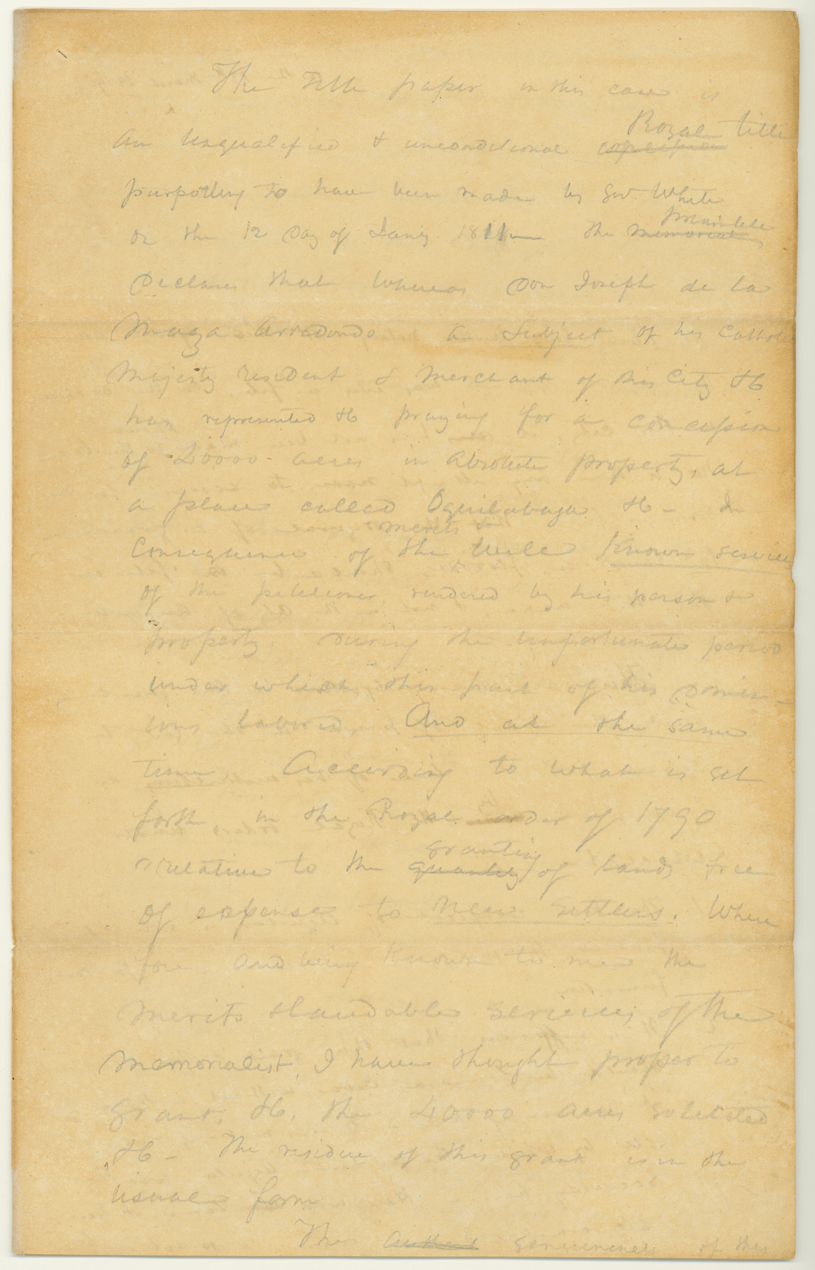 The Title paper in this case is
an unqualified & unconditional ~~concession~~ Royal title
purporting to have been made by Gov. White
on the 12 Day of Jany 1811 The ~~memorial~~ preamble
Declares that whereas Don Joseph de la
Maza Arradondo a subject of his Catholic
Majesty resident & merchant of this City &c
has represented &c praying for a concession
of 20000 acres in absolute property, at
a place called &c - In
Consequence of the well Known merits & services
of the petitioner rendered by his person &
property During the unfortunate period
under which this part of his Domin-
ions labored, And at the same
time According to what is set
forth in the Royal order of 1790
relative to the ~~quantity~~ granting of lands free
of expense to New Settlers. Where
fore and being Known to me the
merits & laudable services of the
memorialist, I have thought proper to
grant, &c, the 20000 acres solicited
&c - The residue of this grant is in the
usual form
The genuineness of this